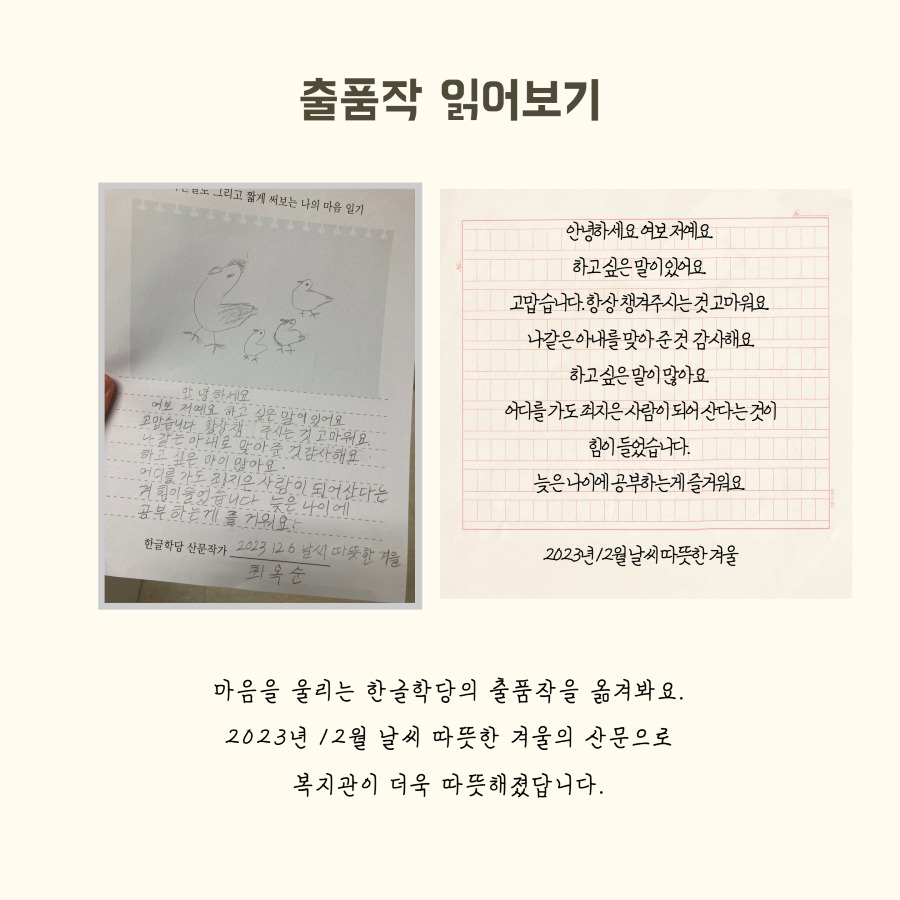 출품작 읽어보기
그리고 짧게 써보는 나의 마음 일기
안녕하세요
여보 저예요 하고 싶은 말이 있어요
고맙습니다 항상 챙 주시는 것 고마워요.
나 같은 아내로 맞아 준 것 감사해요
하고 싶은 마이 많아요.
어디를 가도 죄지은 사람이 되어 산다는
게 힘이 들었습니다 늦은 나이에
공부 하는게 즐거워요!
한글학당 산문작가 2023 12 6 날씨 따뜻한 겨울
최옥순
안녕하세요 여보 저예요
하고 싶은 말이 있어요
고맙습니다. 항상 챙겨주시는 것 고마워요
나같은 아내를 맞아 준 것 감사해요
하고 싶은 말이 많아요
어디를 가도 죄지은 사람이 되어 산다는 것이
힘이 들었습니다.
늦은 나이에 공부하는게 즐거워요
2023년 12월 날씨 따뜻한 겨울
마음을 울리는 한글학당의 출품작을 옮겨봐요.
2023년 12월 날씨 따뜻한 겨울의 산문으로
복지관이 더욱 따뜻해졌답니다.